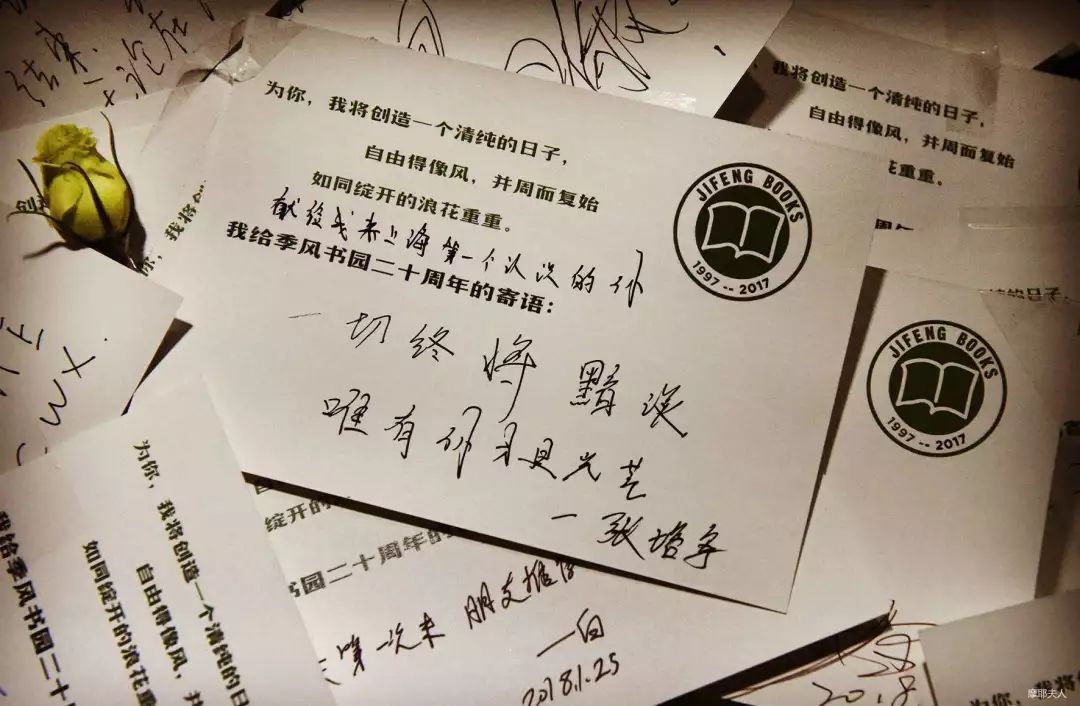 结束.
为你，我将创造一个清纯的日子，
自由得像风，并周而复始
如同绽开的浪花重重。
献给我来上海第一个认识的你
我给季风书园二十周年的寄语：
一切终将黯淡
唯有你才是光芒
一张
JIFENG BOOKS
1997 -- 2017
我将创造一个清纯的日子，
自由得像风，并周而复始
花重重。
JIFENG BOOKS
1997 -- 2017
我将
为你，我将创造一个清纯的日
自由得像风，并
如同绽开的浪花重
我给季风书园二十
绽开的
书园二十周年的
第一次来 朋友推
一白
2018.1.25
2018
为你，我将
摩耶夫人